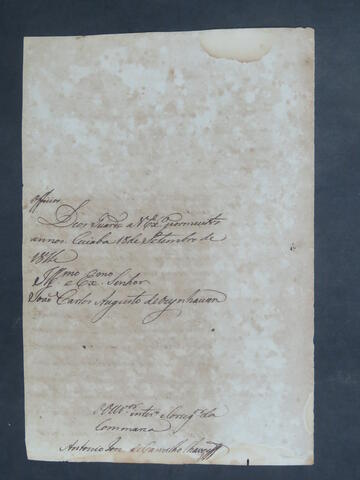 officios
Deos Guarde a V Exª por muitos
annos Cuiaba 18 de Setembro de
Illmo e Exmo Senhor
João Carlos Augusto de Oeynhausen
O Ouvor intero e Corregor da
Commarca
Antonio José de Carvalho Chaves